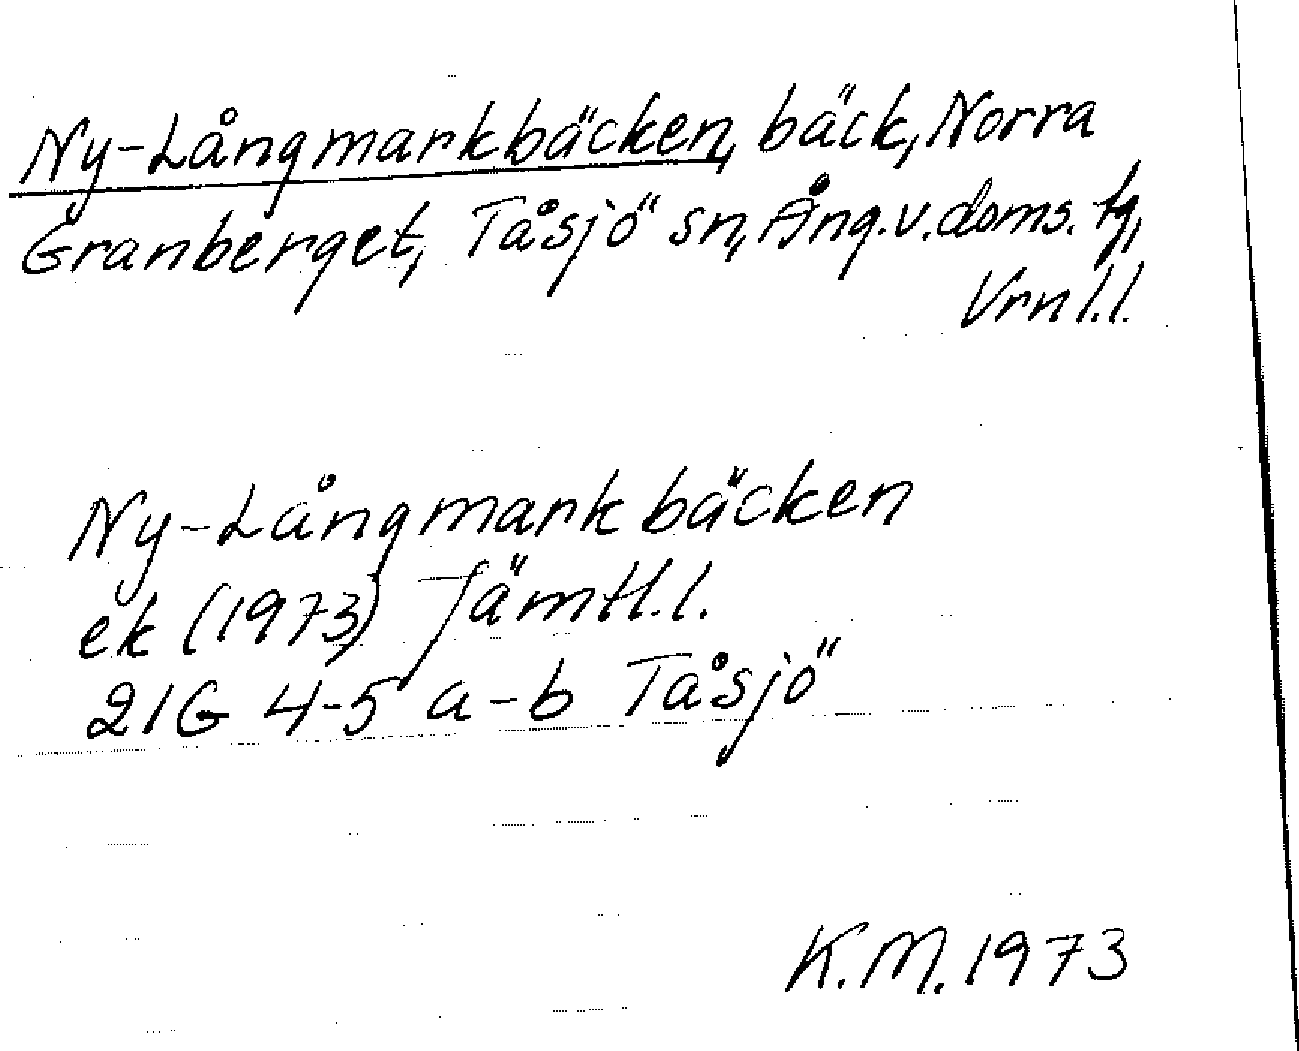 Ny-Långmarkbäcken, bäck, Norra
Granberget, Tåsjö sn, Ång.v.doms. tg,
Vrnl.l.
Ny-Långmarkbäcken
ek (1973) Jämtl.l.
21G 4-5 a-b Tåsjö
K.M. 1973